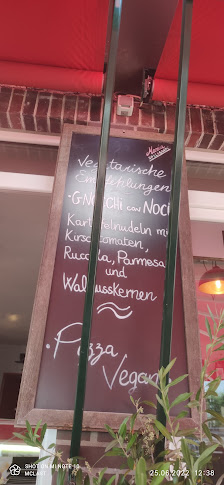 Vegetarische
Empfehlungen
• GNOCCHI CON NOCI
Kartoffelnudeln mit
Kirschtomaten,
Ruccola, Parmesan
und
Walnusskernen
• Pizza
Vegan
SHOT ON MI NOTE 10
MCLAN
25.06.2022 12:38